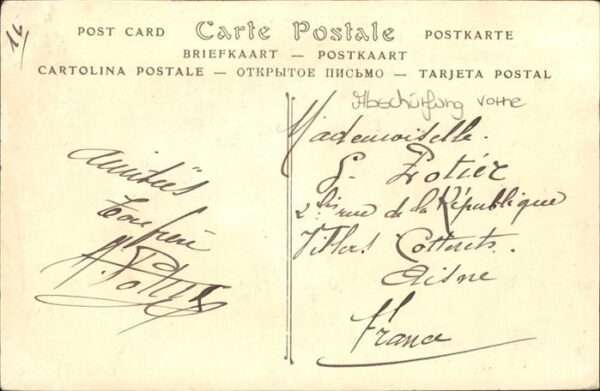 14
POST CARD Carte Postale POSTKARTE
BRIEFKAART — POSTKAART
CARTOLINA POSTALE — ОТКРЫТОЕ ПИСЬМО — TARJETA POSTAL
Abschürfung vorne
Mademoiselle.
Potier
2 bis rue de la République
Villers Cotterets.
Aisne
France
Amitiés
Ton frère
Potier